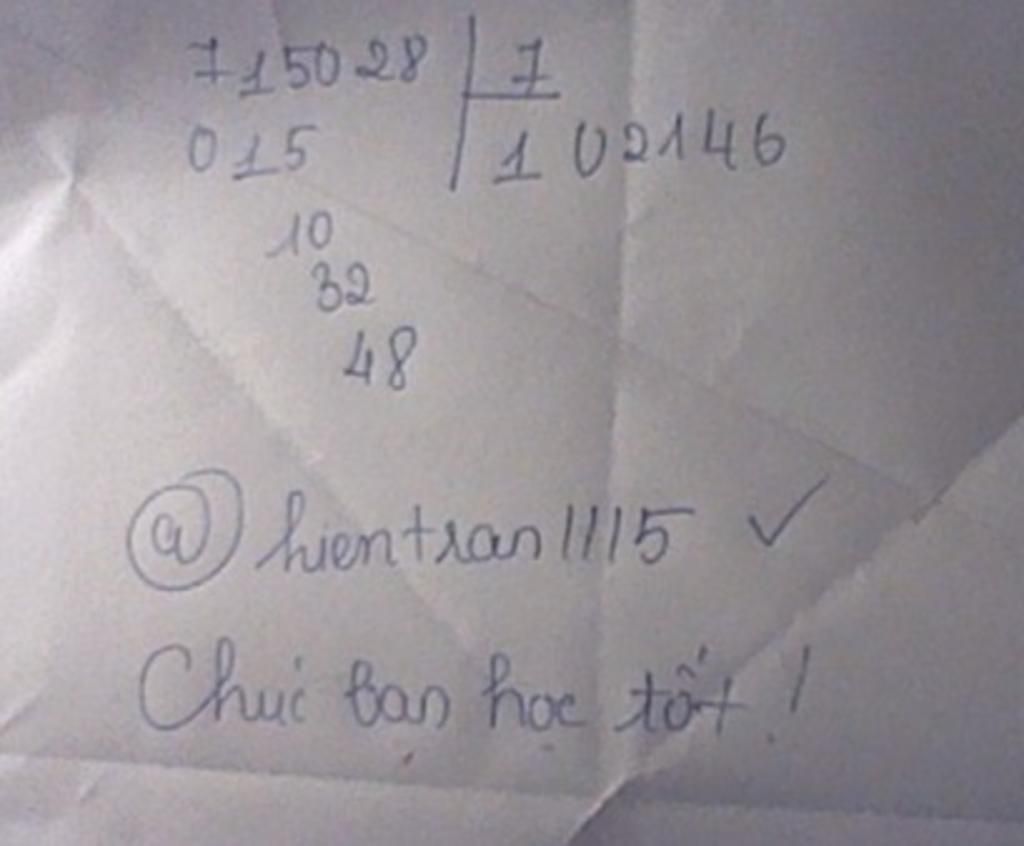 715028 | 7
015 | 102146
10
32
48
@hientran11115 ✓
Chúc bạn học tốt !